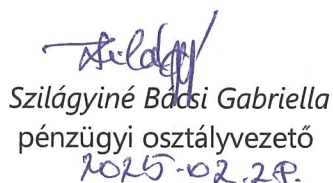 Szilágyiné Bácsi Gabriella
pénzügyi osztályvezető
2025-02.28.